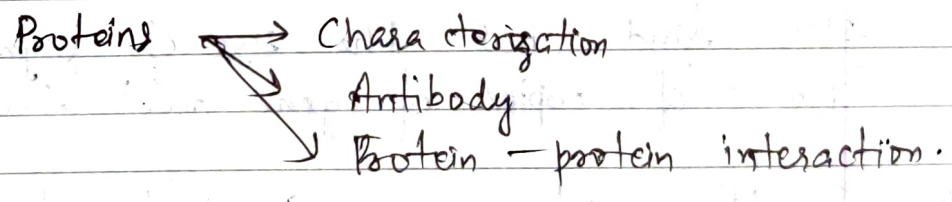 Proteins → Characterization
Antibody
Protein - protein interaction.